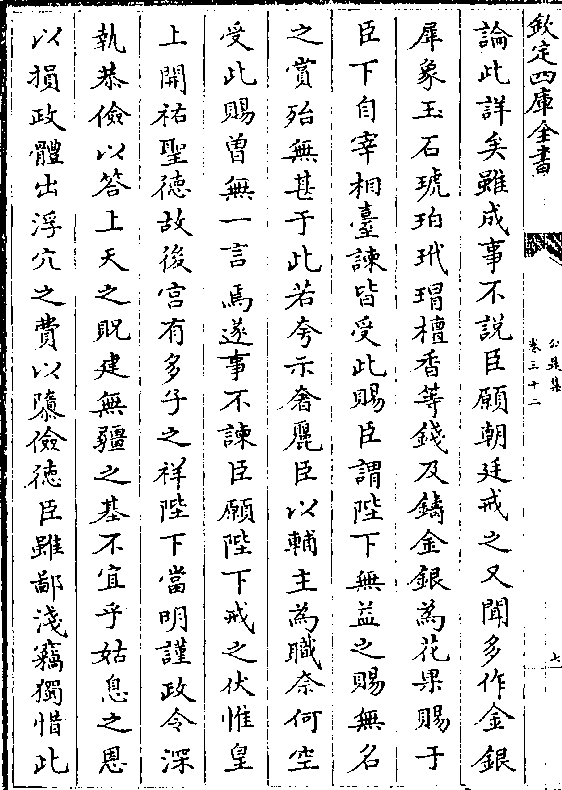 欽定四庫全書
公是集
卷三十二
七
論此詳矣雖成事不説臣願朝廷戒之又聞多作金銀
犀象玉石琥珀玳瑁檀香等錢及鑄金銀為花果賜于
臣下自宰相臺諫皆受此賜臣謂陛下無益之賜無名
之賞殆無甚于此若夸示奢麗臣以輔主為職奈何空
受此賜曽無一言焉遂事不諫臣願陛下戒之伏惟皇
上開祐聖徳故後宫有多子之祥陛下當明謹政令深
執恭儉以答上天之貺建無疆之基不宜乎姑息之恩
以損政體出浮冗之費以隳儉徳臣雖鄙淺竊獨惜此